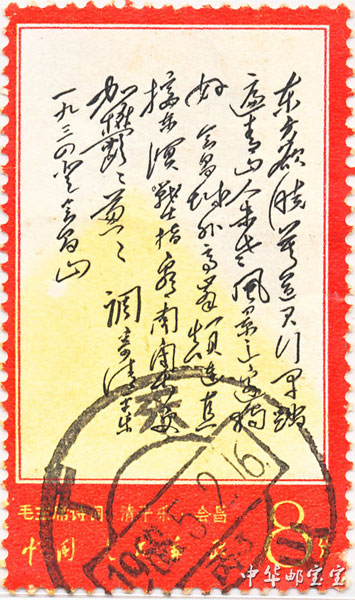 东方欲晓莫道君行早踏
遍青山人未老風景这边独
好会昌城外高峯顛连直
接东溟戰士指看南粤更
加欝々葱々 调寄清平乐
一九三四 登会昌山
毛主席诗词 清平乐 会昌
中国人民邮政 8分
5.2.16
中华邮宝宝